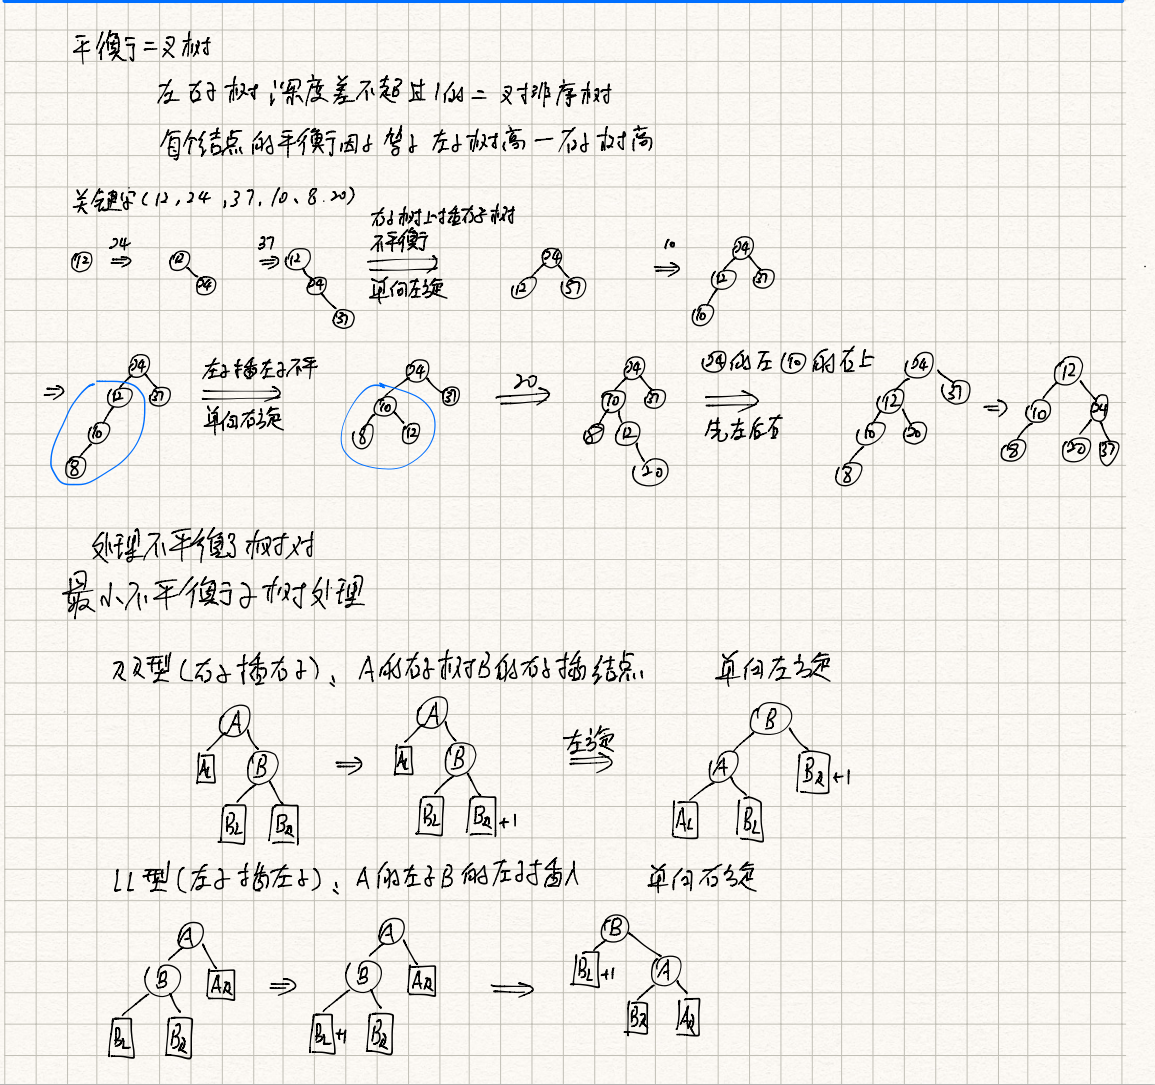 平衡二叉树
左右子树深度差不超过1的二叉排序树
每个结点的平衡因子等于左子树高一右子树高
关键字(12,24,37,10、8.20)
右子树上插右子树
12 24⇒ 12 24 37⇒ 12 24 37 不平衡 单向左旋 24 12 37 10⇒ 24 12 37 10
⇒ 24 12 37 10 8 左子插左子不平 单向右旋 24 10 37 8 12 20 24 10 37 8 12 20 24的左10的右上 先左后右 24 12 37 10 20 8 ⇒ 12 10 24 8 20 37
处理不平衡树时
最小不平衡子树处理
RR型(右子插右子)、A的右子树B的右子插结点. 单向左旋
A AL B BL BR ⇒ A AL B BL BR+1 左旋 B A BR+1 AL BL
LL型(左子插左子)、A的左子B的左子插入 单向右旋
A B AR BL BR ⇒ A B AR BL+1 BR ⇒ B BL+1 A BR AR